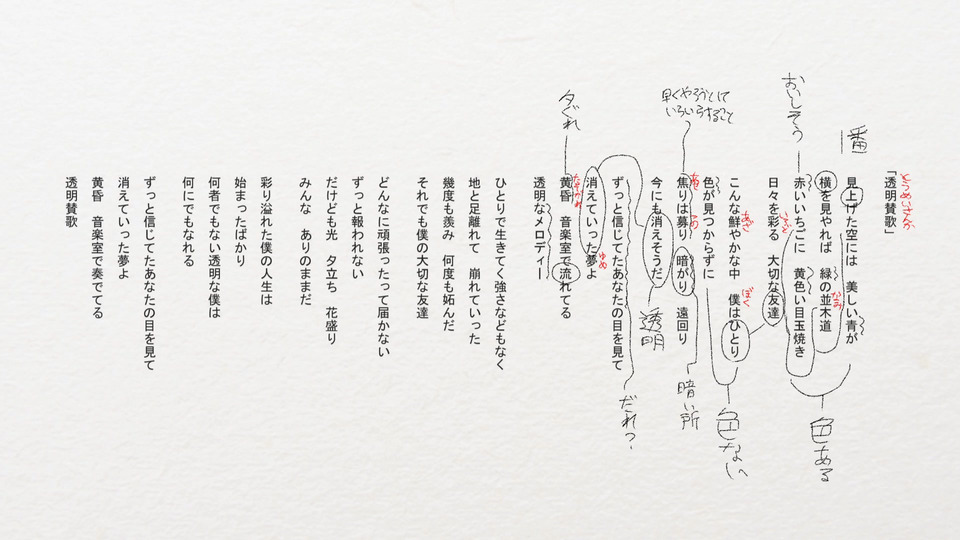 「透明賛歌」
とうめいさんか
一番
見上げた空には　美しい青が
横を見やれば　緑の並木道
なみ
赤いいちごに　黄色い目玉焼き
おいしそう
色ある
日々を彩る　大切な友達
いろど
こんな鮮やかな中　僕はひとり
あざ
ぼく
色が見つからずに
色ない
焦りは募り　暗がり　遠回り
あせ
つの
早くやろうとして
いろいろすること
暗い所
今にも消えそうだ
透明
ずっと信じてたあなたの目を見て
だれ？
消えていった夢よ
ゆめ
黄昏　音楽室で流れてる
たそがれ
夕ぐれ
透明なメロディー
ひとりで生きてく強さなどもなく
地と足離れて　崩れていった
幾度も羨み　何度も妬んだ
それでも僕の大切な友達
どんなに頑張ったって届かない
ずっと報われない
だけども光　夕立ち　花盛り
みんな　ありのままだ
彩り溢れた僕の人生は
始まったばかり
何者でもない透明な僕は
何にでもなれる
ずっと信じてたあなたの目を見て
消えていった夢よ
黄昏　音楽室で奏でてる
透明賛歌